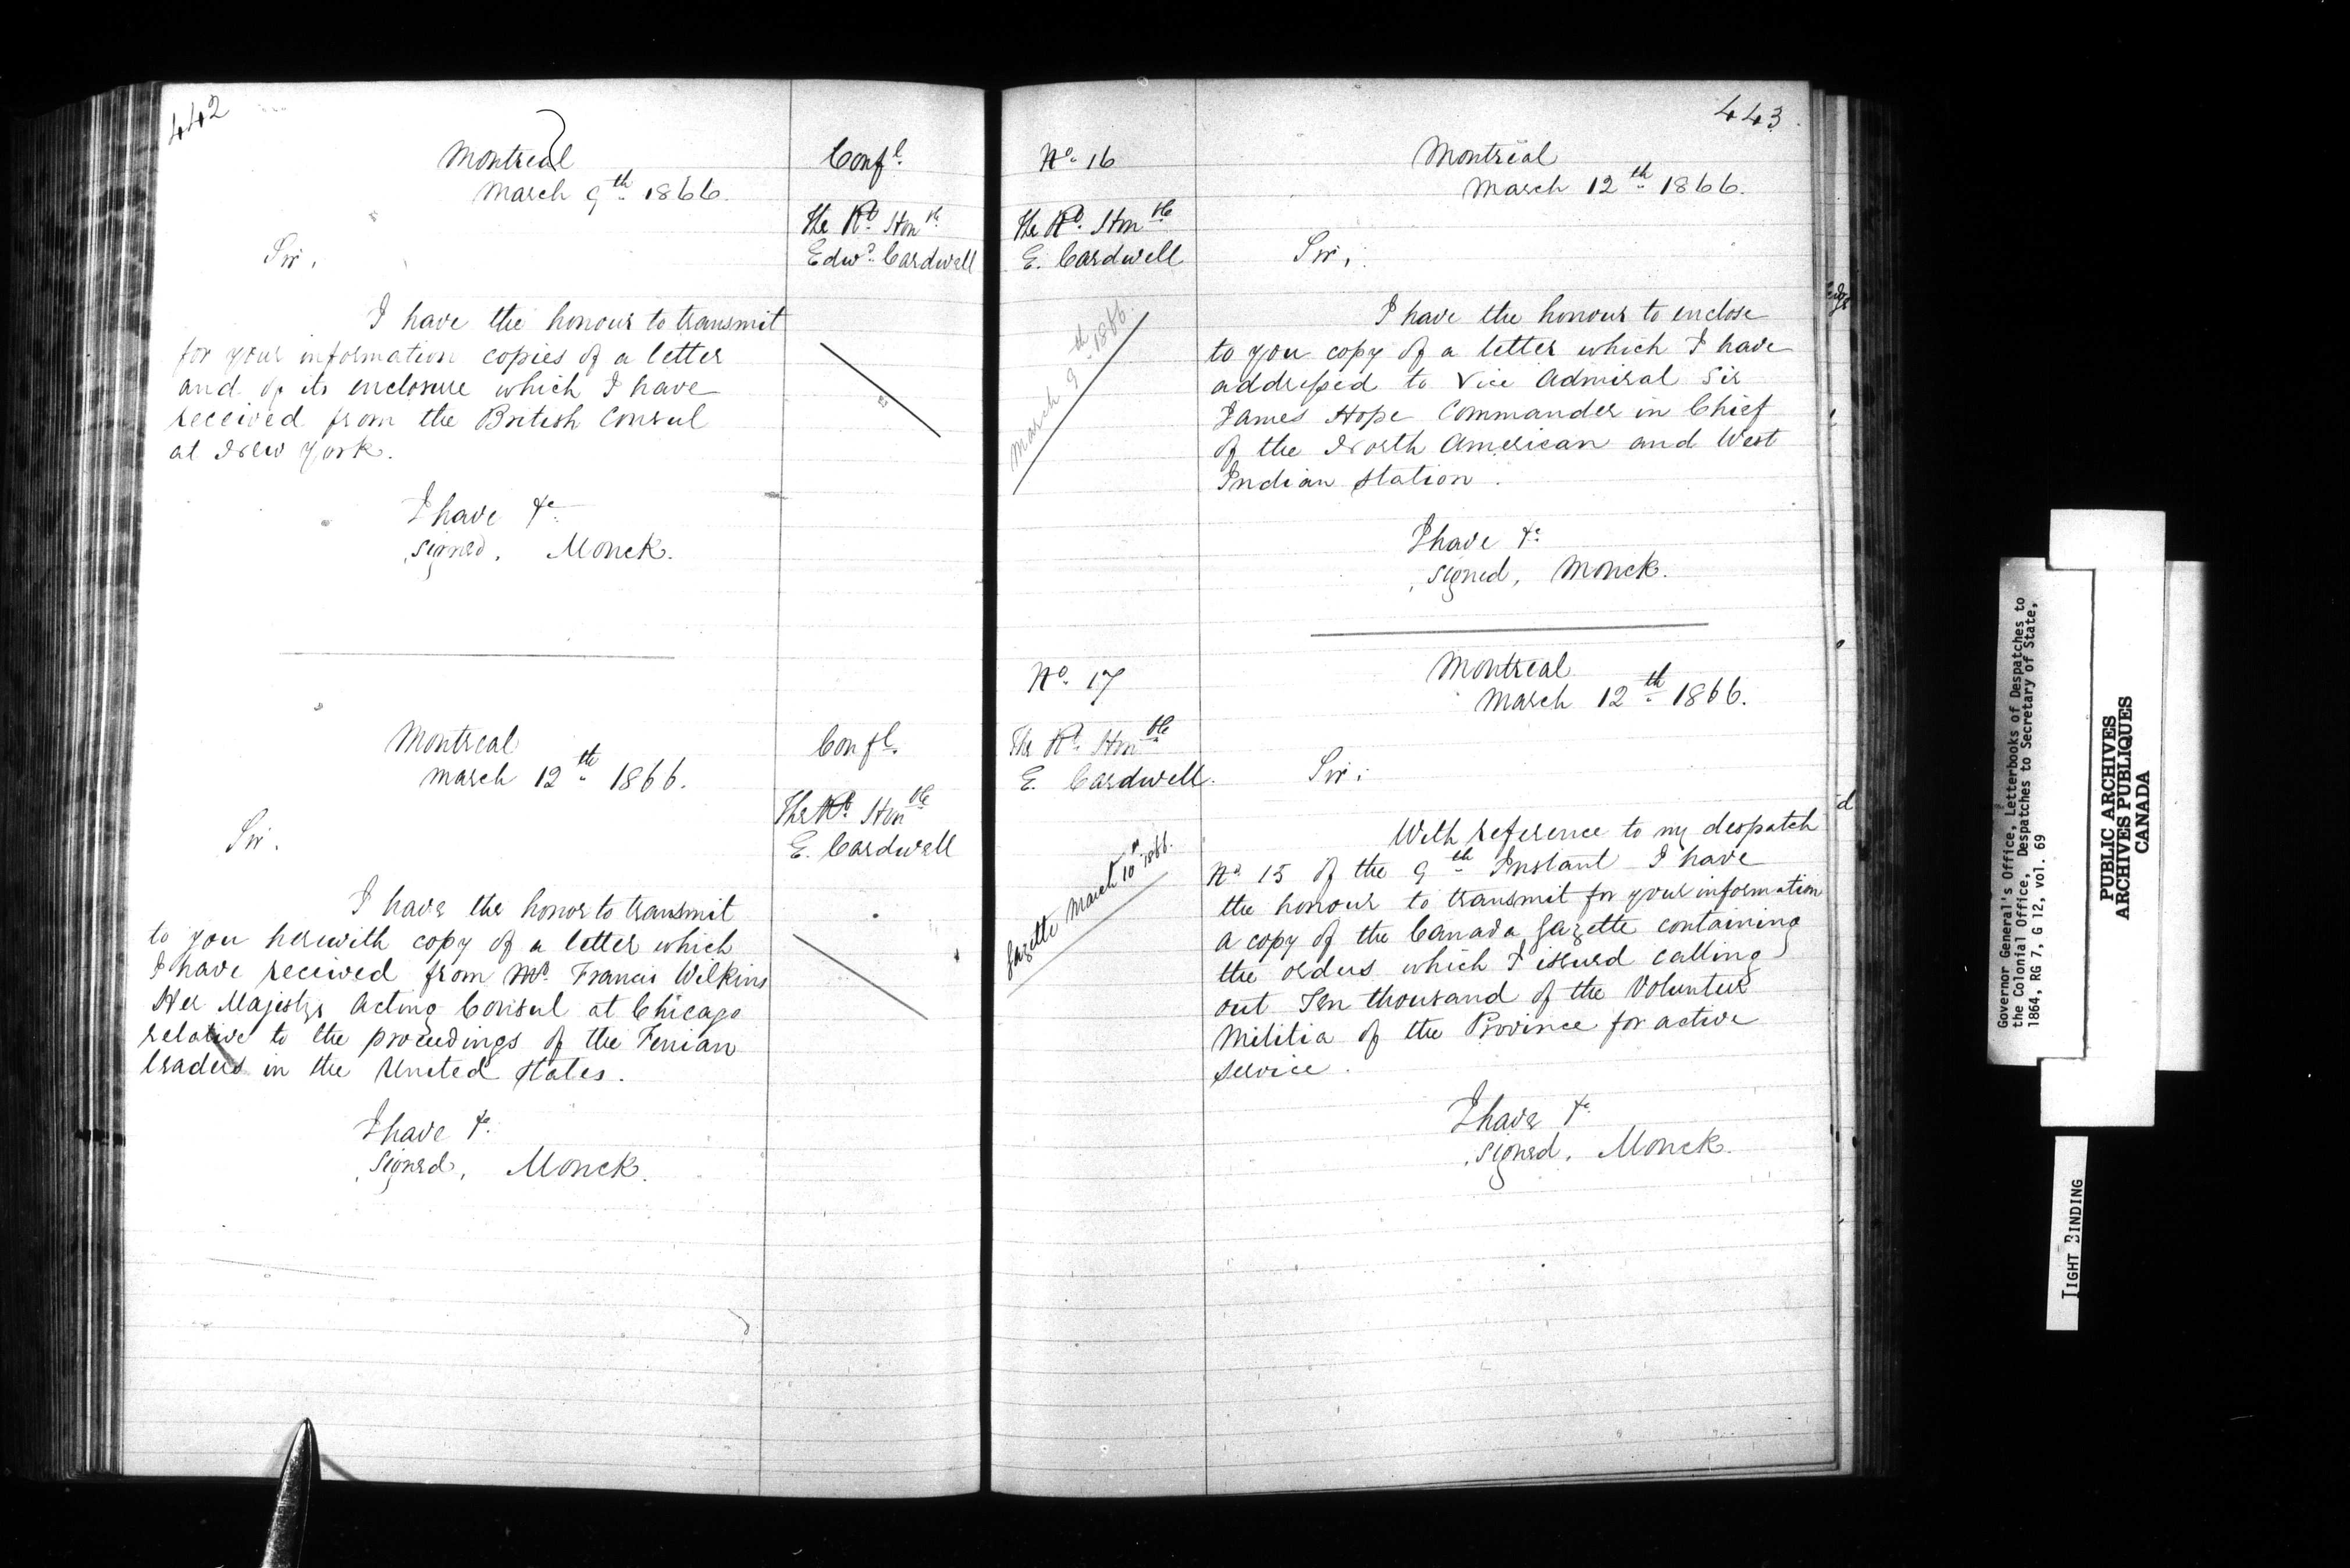 442
Montreal
March 9th 1866.
Confl.
The Rt. Honble
Edwd. Cardwell
Sir,
I have the honour to transmit
for your information copies of a letter
and of its enclosure which I have
received from the British Consul
at New York.
I have &c
signed, Monck.
Montreal
March 12th 1866.
Confl.
The Rt. Honble
E. Cardwell
Sir.
I have the honor to transmit
to you herewith copy of a letter which
I have received from Mr. Francis Wilkins
Her Majestys Acting Consul at Chicago
relative to the proceedings of the Fenian
leaders in the United States.
I have &c.
signed, Monck.
443.
No. 16
The Rt. Honble
E. Cardwell
March 9th 1866
Montreal
March 12th 1866.
Sir,
I have the honour to enclose
to you copy of a letter which I have
addressed to Vice Admiral Sir
James Hope Commander in Chief
of the North American and West
Indian Station.
I have &c.
signed, Monck.
No. 17
The Rt. Honble
E. Cardwell.
Gazette March 10th 1866.
Montreal
March 12th 1866.
Sir,
With reference to my despatch
No. 15 of the 9th Instant I have
the honour to transmit for your information
a copy of the Canada Gazette containing
the orders which I issued calling
out Ten thousand of the Volunteer
Militia of the Province for active
service.
I have &c
signed, Monck.
Governor General's Office, Letterbooks of Despatches to
the Colonial Office, Despatches to Secretary of State,
1864, RG 7, G 12, vol. 69
PUBLIC ARCHIVES
ARCHIVES PUBLIQUES
CANADA
TIGHT BINDING